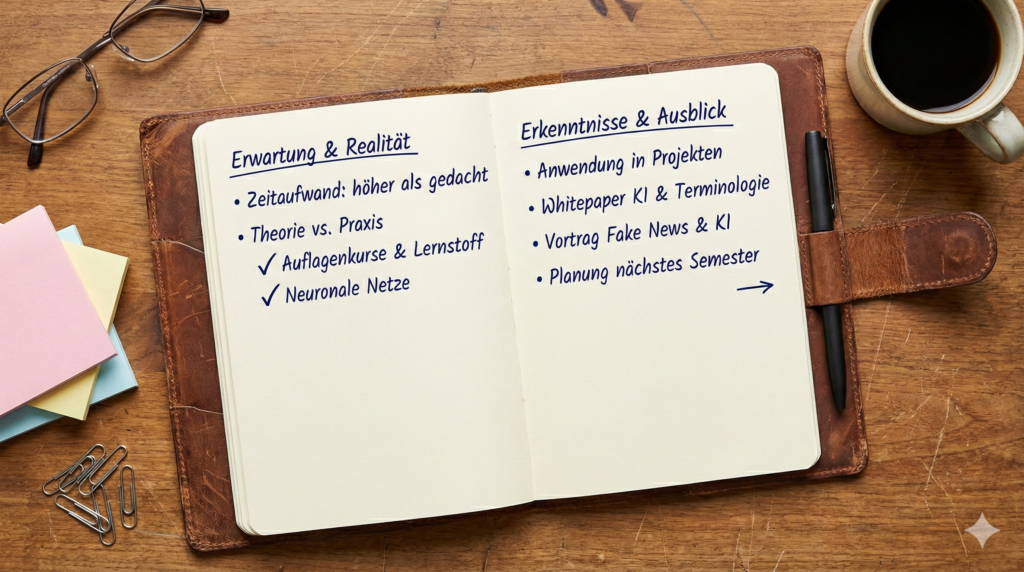 Erwartung & Realität
• Zeitaufwand: höher als gedacht
• Theorie vs. Praxis
✓ Auflagenkurse & Lernstoff
✓ Neuronale Netze
Erkenntnisse & Ausblick
• Anwendung in Projekten
• Whitepaper KI & Terminologie
• Vortrag Fake News & KI
• Planung nächstes Semester
→